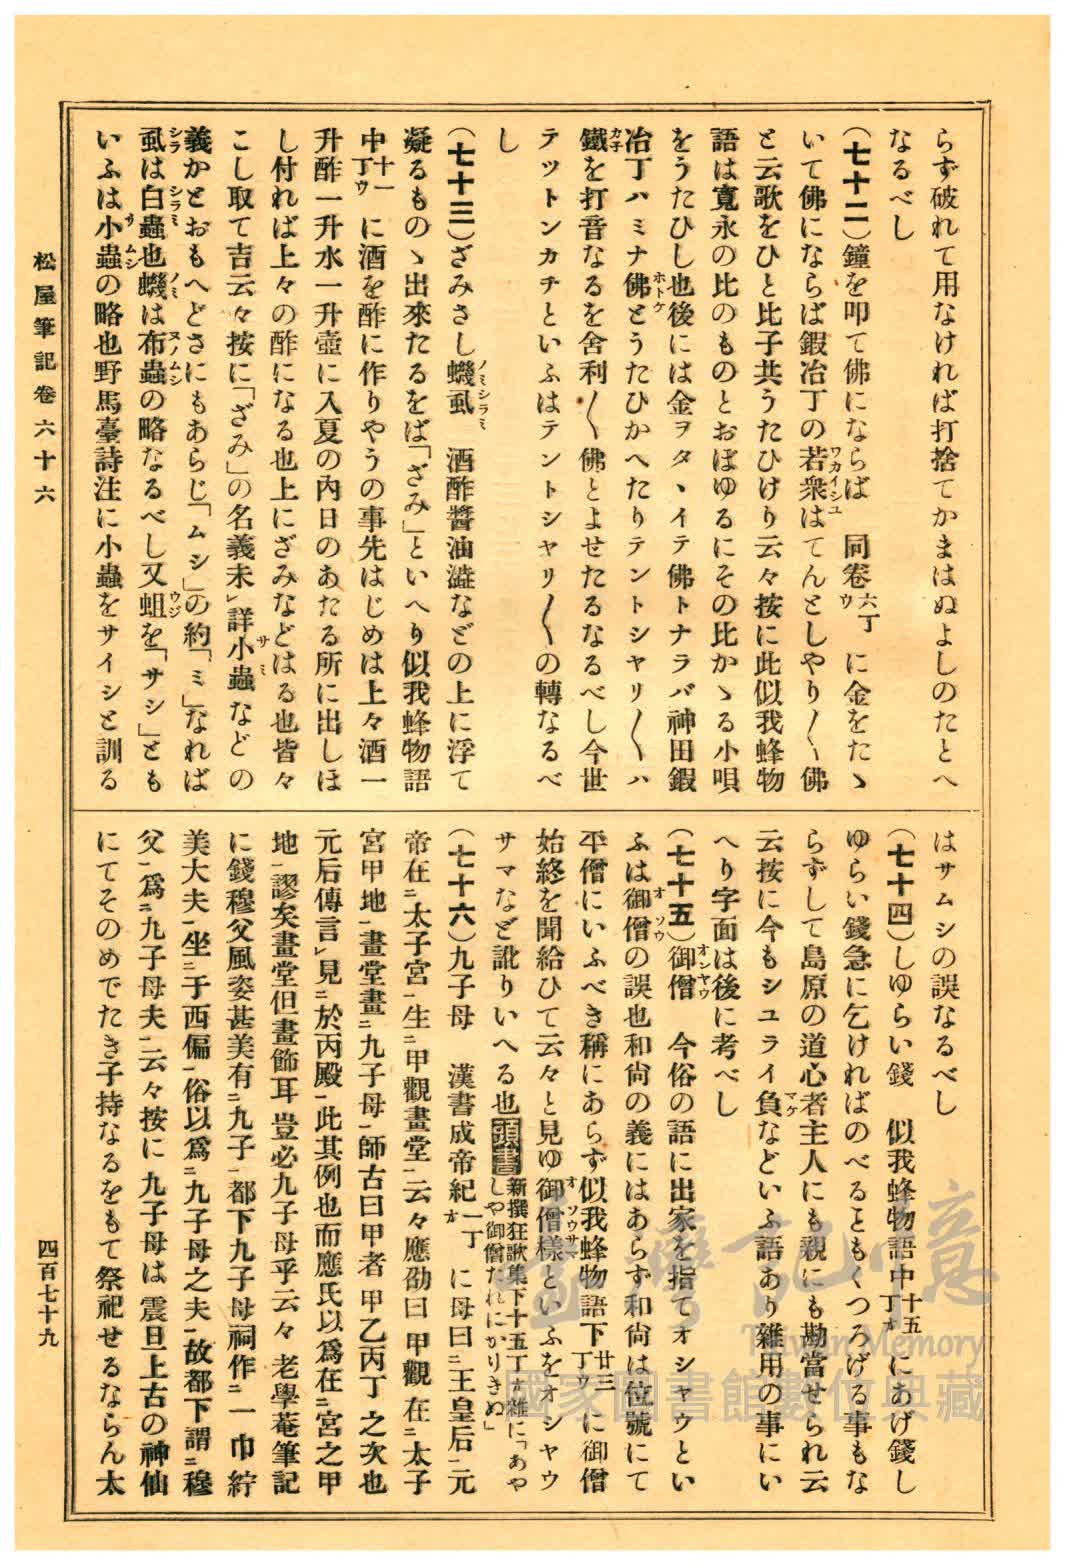 らず破れて用なければ打捨てかまはぬよしのたとへ
なるべし
(七十二)鐘を叩て佛にならば　同卷六丁ウに金をたゝ
いて佛にならば鍜冶丁の若衆はてんとしやり〳〵佛
と云歌をひと比子共うたひけり云々按に此似我蜂物
語は寬永の比のものとおぼゆるにその比かゝる小唄
をうたひし也後には金ヲタヽイテ佛トナラバ神田鍜
冶丁ハミナ佛とうたひかへたりテントシヤリ〳〵ハ
鐵を打音なるを舍利〳〵佛とよせたるなるべし今世
テツトンカチといふはテントシヤリ〳〵の轉なるべ
し
(七十三)ざみさし蟣虱　酒酢醬油澁などの上に浮て
凝るものゝ出來たるをば「ざみ」といへり似我蜂物語
中十一丁ウに酒を酢に作りやうの事先はじめは上々酒一
升酢一升水一升壺に入夏の內日のあたる所に出しほ
し付れば上々の酢になる也上にざみなどはる也皆々
こし取て吉云々按に「ざみ」の名義未㆑詳小蟲などの
義かとおもへどさにもあらじ「ムシ」の約「ミ」なれば
虱は白蟲也蟣は布蟲の略なるべし又蛆を「サシ」とも
いふは小蟲の略也野馬臺詩注に小蟲をサイシと訓る
はサムシの誤なるべし
(七十四)しゆらい錢　似我蜂物語中十五丁オにあげ錢し
ゆらい錢急に乞ければのべることもくつろげる事もな
らずして島原の道心者主人にも親にも勘當せられ云
云按に今もシユライ負などいふ語あり雜用の事にい
へり字面は後に考べし
(七十五)御僧　今俗の語に出家を指てオシヤウとい
ふは御僧の誤也和尙の義にはあらず和尙は位號にて
平僧にいふべき稱にあらず似我蜂物語下廿三丁ウに御僧
始終を聞給ひて云々と見ゆ御僧樣といふをオシヤウ
サマなど訛りいへる也頭書新撰狂歌集下十五丁オ雜に「あや
しや御僧だれにかりきぬ」
(七十六)九子母　漢書成帝紀一丁オに母曰㆓王皇后㆒元
帝在㆓太子宮㆒生㆓甲觀畫堂㆒云々應劭曰甲觀在㆓太子
宮甲地㆒畫堂畫㆓九子母㆒師古曰甲者甲乙丙丁之次也
元后傳言㆑見㆓於丙殿㆒此其例也而應氏以爲在㆓宮之甲
地㆒謬矣畫堂但畫飾耳豈必九子母乎云々老學菴筆記
に錢穆父風姿甚美有㆓九子㆒都下九子母祠作㆓一巾紵
美大夫㆒坐㆓于西偏㆒俗以爲㆓九子母之夫㆒故都下謂㆓穆
父㆒爲㆓九子母夫㆒云々按に九子母は震旦上古の神仙
にてそのめでたき子持なるをもて祭祀せるならん太
松屋筆記卷六十六
四百七十九
臺灣記憶
Taiwan Memory
國家圖書館數位典藏